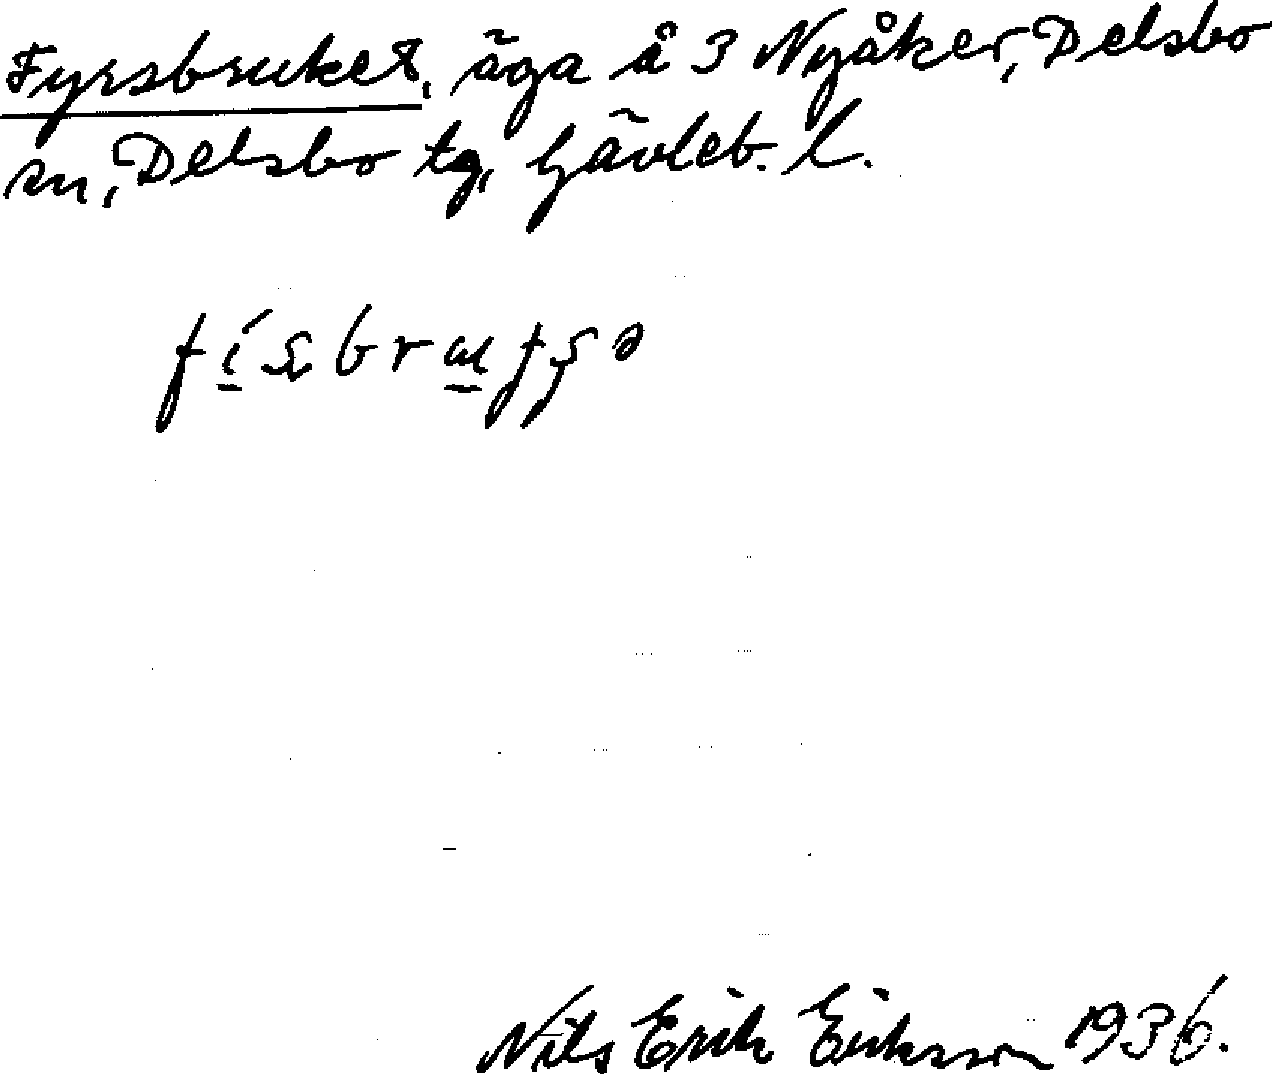 Fyrsbruket, äga å 3 Nyåker, Delsbo
sn, Delsbo tg, Gävleb. l.
Nils Erik Eriksson 1936.